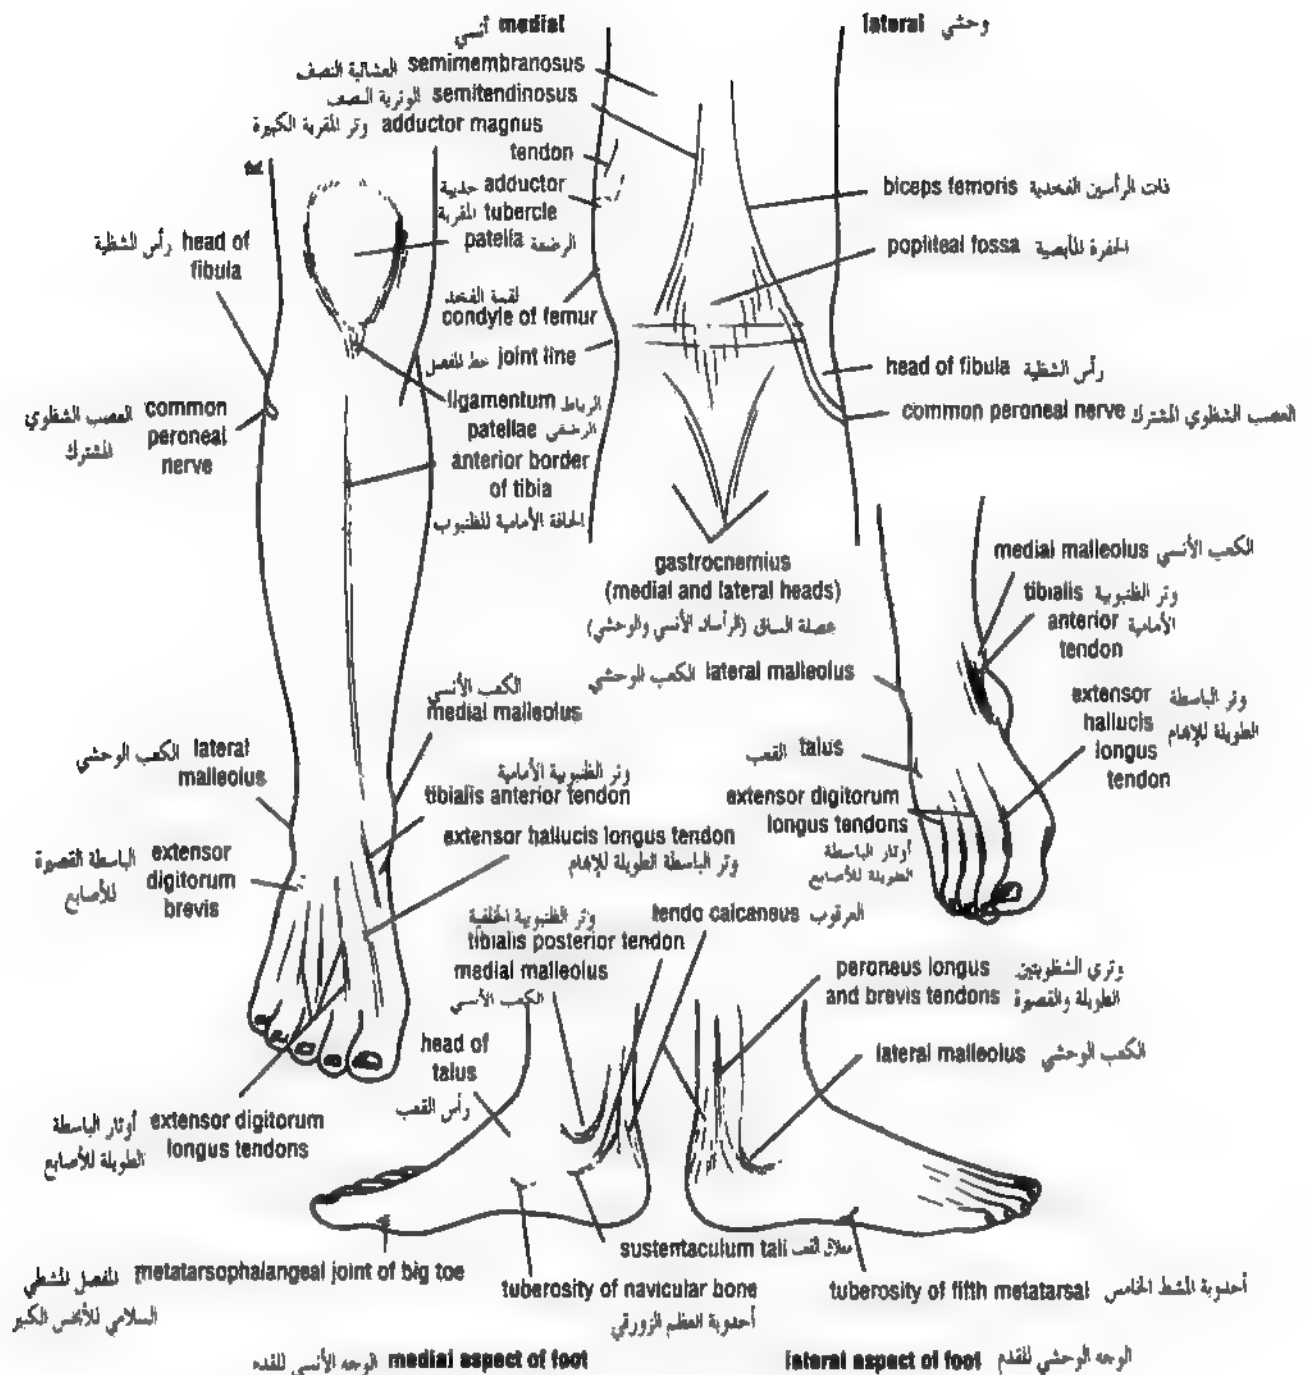 أنسي medial
lateral وحشي
العشائية النصف semimembranosus
الوترية النصف semitendinosus
وتر المقربة الكبيرة adductor magnus
tendon
حدبية adductor
المقربة tubercle
الرضفة patella
لقمة الفخذ
condyle of femur
خط المفصل joint line
ligamentum الرباط
patellae الرضفي
anterior border
of tibia
الحافة الأمامية للظنبوب
رأس الشظية head of
fibula
العصب الشظوي common
المشترك peroneal
nerve
biceps femoris ذات الرأسين الفخذية
popliteal fossa الحفرة المأبضية
head of fibula رأس الشظية
common peroneal nerve العصب الشظوي المشترك
gastrocnemius
(medial and lateral heads)
عضلة الساق (الرأسان الأنسي والوحشي)
medial malleolus الكعب الأنسي
tibialis وتر الظنبوبية
anterior الأمامية
tendon
الكعب الوحشي lateral malleolus
extensor وتر الباسطة
hallucis الطويلة للإبهام
longus
tendon
القعب talus
extensor digitorum
longus tendons
أوتار الباسطة
الطويلة للأصابع
الكعب الأنسي
medial malleolus
الكعب الوحشي lateral
malleolus
وتر الظنبوبية الأمامية
tibialis anterior tendon
extensor hallucis longus tendon
وتر الباسطة الطويلة للإبهام
الباسطة القصيرة extensor
للأصابع digitorum
brevis
أوتار الباسطة extensor digitorum
الطويلة للأصابع longus tendons
وتر الظنبوبية الخلفية
tibialis posterior tendon
medial malleolus
الكعب الأنسي
tendo calcaneus العرقوب
head of
talus
رأس القعب
peroneus longus وتري الشظويتين
and brevis tendons الطويلة والقصيرة
lateral malleolus الكعب الوحشي
sustentaculum tali معلاق القعب
المفصل المشطي metatarsophalangeal joint of big toe
السلامي للأبخس الكبير
tuberosity of navicular bone
أحدوبة العظم الزورقي
tuberosity of fifth metatarsal أحدوبة المشط الخامس
الوجه الأنسي للقدم medial aspect of foot
lateral aspect of foot الوجه الوحشي للقدم